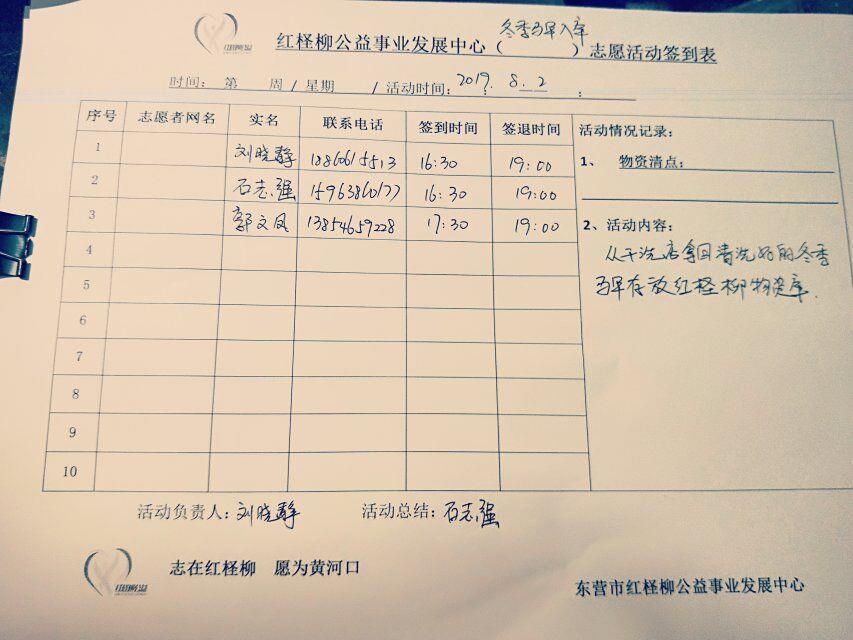 冬季马甲入库
红柽柳公益事业发展中心（ ）志愿活动签到表
时间： 第 周 / 星期 / 活动时间：2019. 8. 2
序号 志愿者网名 实名 联系电话 签到时间 签退时间 活动情况记录：
1 刘晓静 18860615513 16:30 19:00 1、 物资清点：
2 石志强 15963860177 16:30 19:00
3 郭文凤 13854659228 17:30 19:00 2、活动内容：
4 从干洗店拿回清洗好的冬季
5 马甲存放红柽柳物资库.
6
7
8
9
10
活动负责人：刘晓静 活动总结：石志强
志在红柽柳 愿为黄河口
东营市红柽柳公益事业发展中心